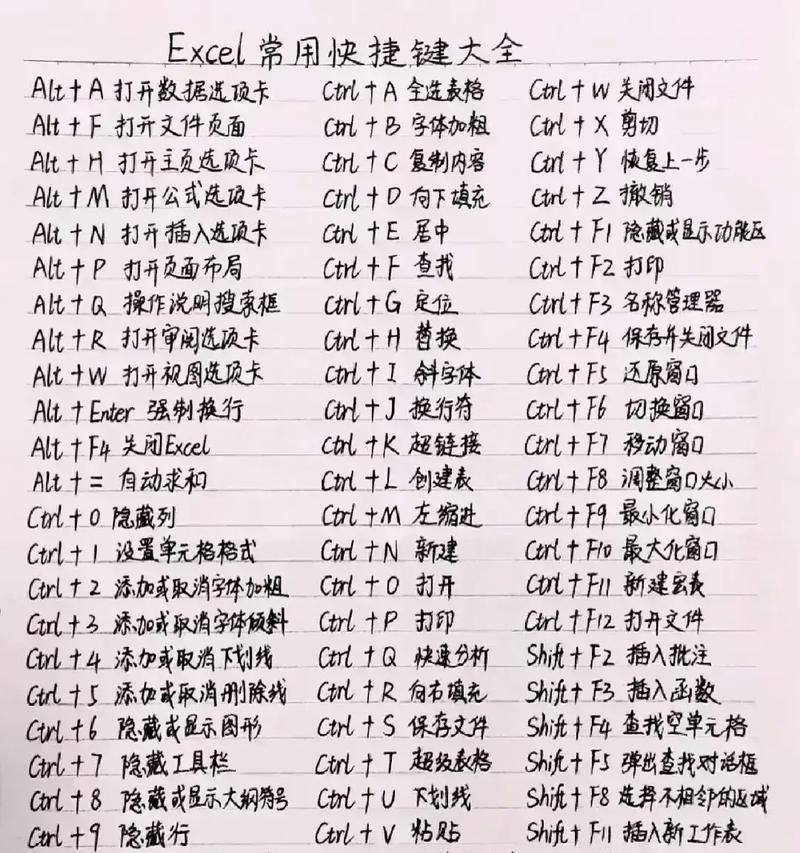 Excel常用快捷键大全
Alt+A 打开数据选项卡
Alt+F 打开文件页面
Alt+H 打开主页选项卡
Alt+M 打开公式选项卡
Alt+N 打开插入选项卡
Alt+P 打开页面布局
Alt+Q 操作说明搜索框
Alt+R 打开审阅选项卡
Alt+W 打开视图选项卡
Alt+Enter 强制换行
Alt+F4 关闭Excel
Alt+= 自动求和
Ctrl+0 隐藏列
Ctrl+1 设置单元格格式
Ctrl+2 添加或取消字体加粗
Ctrl+3 添加或取消字体倾斜
Ctrl+4 添加或取消下划线
Ctrl+5 添加或取消删除线
Ctrl+6 隐藏或显示图形
Ctrl+7 隐藏工具栏
Ctrl+8 隐藏或显示大纲符号
Ctrl+9 隐藏行
Ctrl+A 全选表格
Ctrl+B 字体加粗
Ctrl+C 复制内容
Ctrl+D 向下填充
Ctrl+E 居中
Ctrl+F 查找
Ctrl+G 定位
Ctrl+H 替换
Ctrl+I 斜字体
Ctrl+J 换行符
Ctrl+K 超链接
Ctrl+L 创建表
Ctrl+M 左缩进
Ctrl+N 新建
Ctrl+O 打开
Ctrl+P 打印
Ctrl+Q 快速分析
Ctrl+R 向右填充
Ctrl+S 保存文件
Ctrl+T 超级表格
Ctrl+U 下划线
Ctrl+V 粘贴
Ctrl+W 关闭文件
Ctrl+X 剪切
Ctrl+Y 恢复上一步
Ctrl+Z 撤销
Ctrl+F1 隐藏或显示功能区
Ctrl+F2 打印
Ctrl+F3 名称管理器
Ctrl+F4 保存并关闭文件
Ctrl+F5 还原窗口
Ctrl+F6 切换窗口
Ctrl+F7 移动窗口
Ctrl+F8 调整窗口大小
Ctrl+F9 最小化窗口
Ctrl+F10 最大化窗口
Ctrl+F11 新建宏表
Ctrl+F12 打开文件
Shift+F2 插入批注
Shift+F3 插入函数
Shift+F4 查找空单元格
Shift+F5 弹出查找对话框
Shift+F8 选择不相邻的区域
Shift+F11 插入新工作表